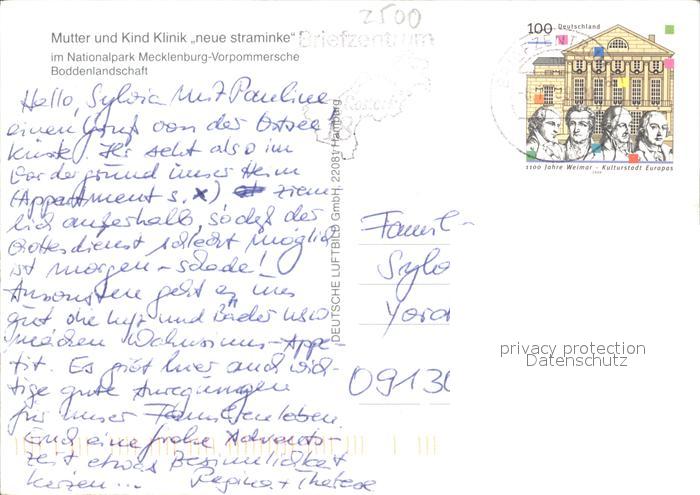 2500
Mutter und Kind Klinik „neue straminke"
im Nationalpark Mecklenburg-Vorpommersche
Boddenlandschaft
Briefzentrum
100 Deutschland
1100 Jahre Weimar - Kulturstadt Europas
1999
DEUTSCHE LUFTBILD GmbH, 22081 Hamburg
Hello, Sylvia mit Pauline
einen Gruß von der Ostsee
Küste. Ihr seht also im
Vordergrund unser Heim
(Appartment s. x) ziem
lich außerhalb, sodaß der
Gottesdienst schlecht möglich
ist morgen - schade!
Ansonsten geht es uns
gut die Luft und Bäder usw
machen Wahnsinns-Appe-
tit. Es gibt hier auch wich-
tige gute Anregungen
für unser Familienleben.
Euch eine frohe Advents-
zeit etwas Besinnlichkeit
Kerzen... Regina +
Famil-
Sylv
0913
privacy protection
Datenschutz